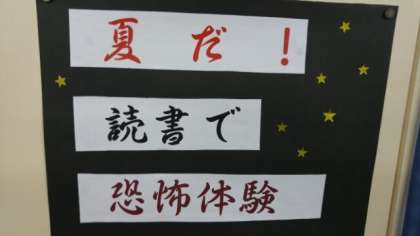 夏だ!
読書で
恐怖体験